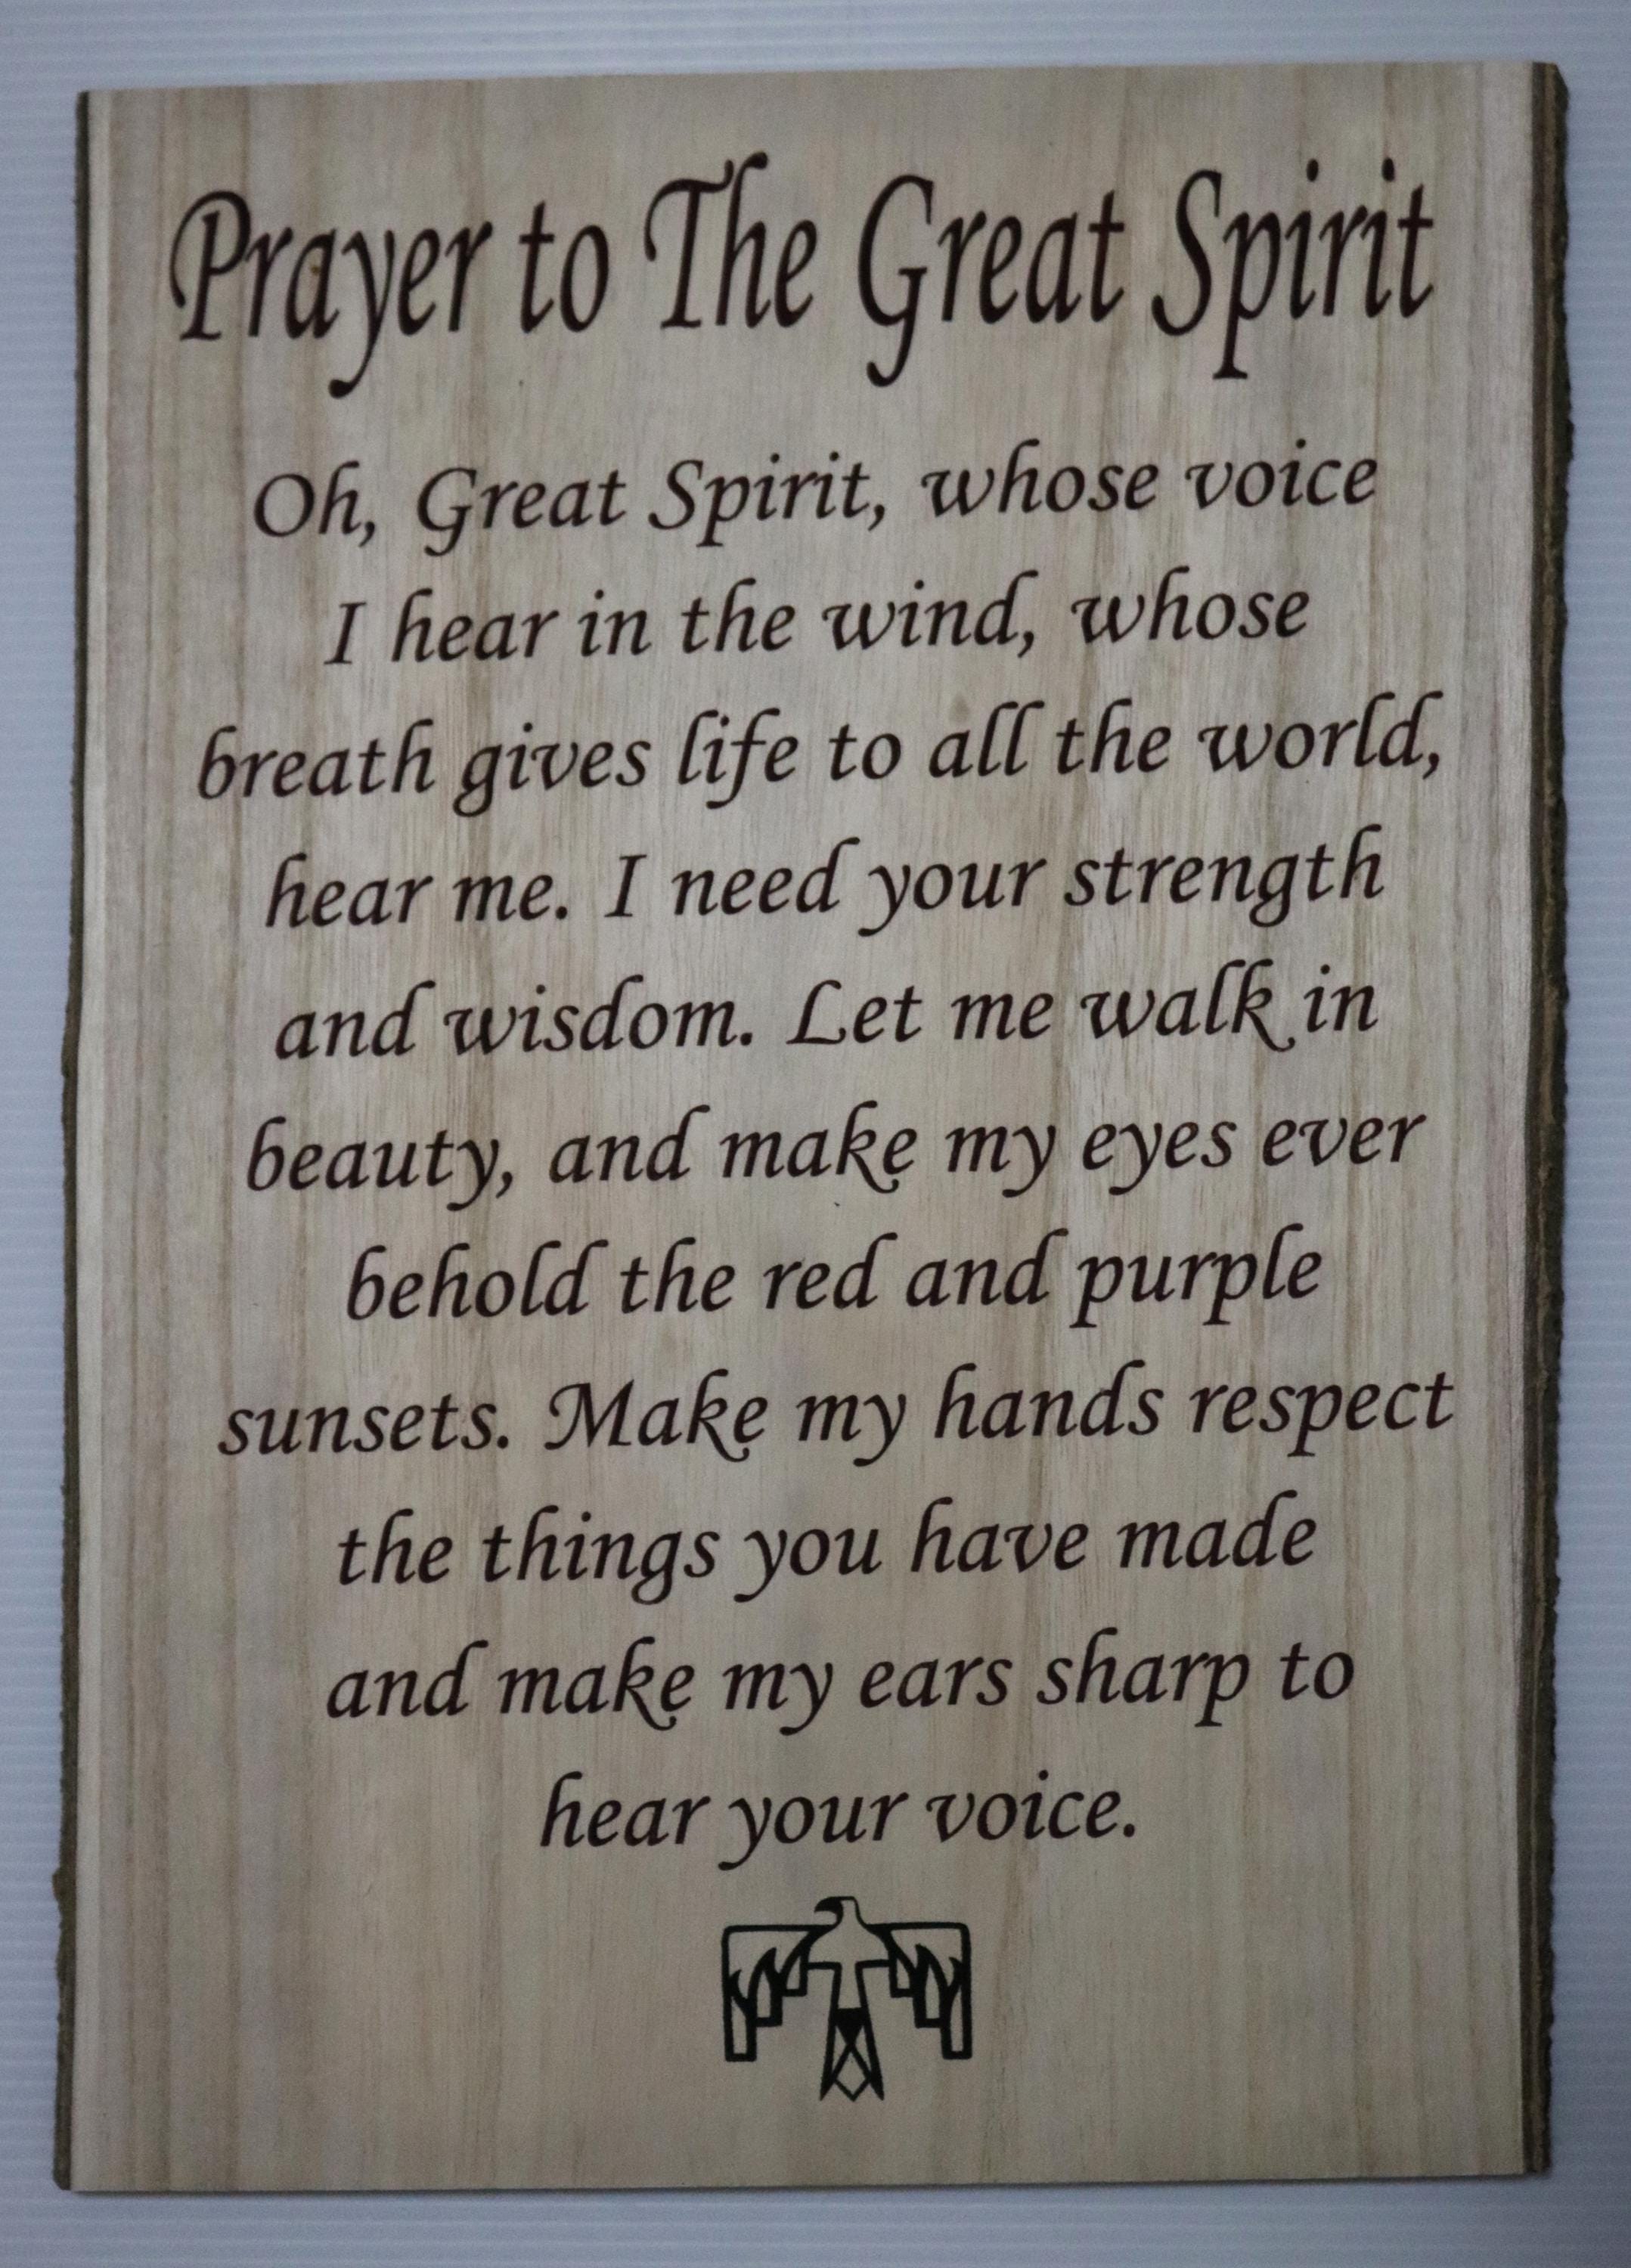 Prayer to The Great Spirit
Oh, Great Spirit, whose voice
I hear in the wind, whose
breath gives life to all the world,
hear me. I need your strength
and wisdom. Let me walk in
beauty, and make my eyes ever
behold the red and purple
sunsets. Make my hands respect
the things you have made
and make my ears sharp to
hear your voice.